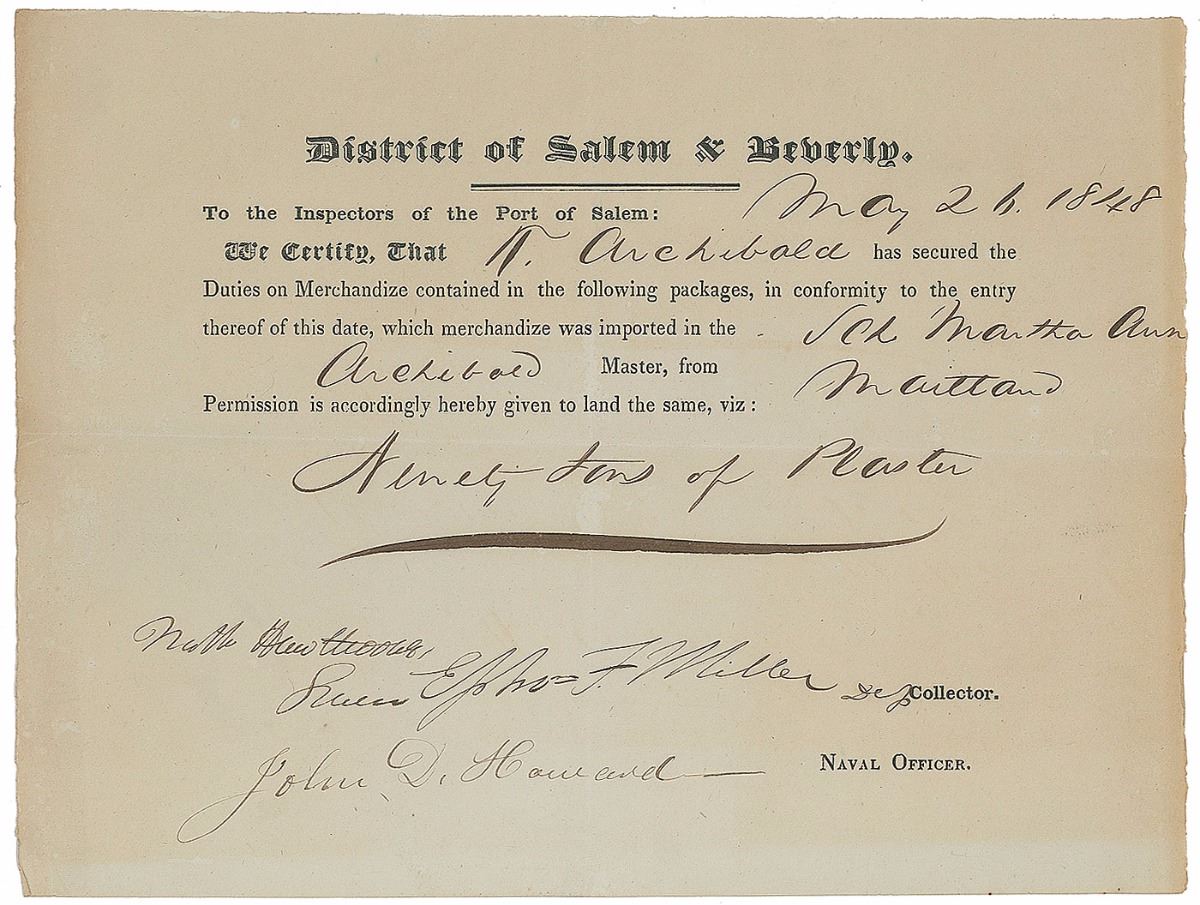 District of Salem & Beverly.
To the Inspectors of the Port of Salem: May 26. 1848
We Certify, That T. Archibald has secured the
Duties on Merchandize contained in the following packages, in conformity to the entry
thereof of this date, which merchandize was imported in the Sch Martha Ann
Archibald Master, from Maitland
Permission is accordingly hereby given to land the same, viz:
Ninety tons of Plaster
Nath Hawthorne,
Ephm F. Miller Dep Collector.
John D. Howard NAVAL OFFICER.